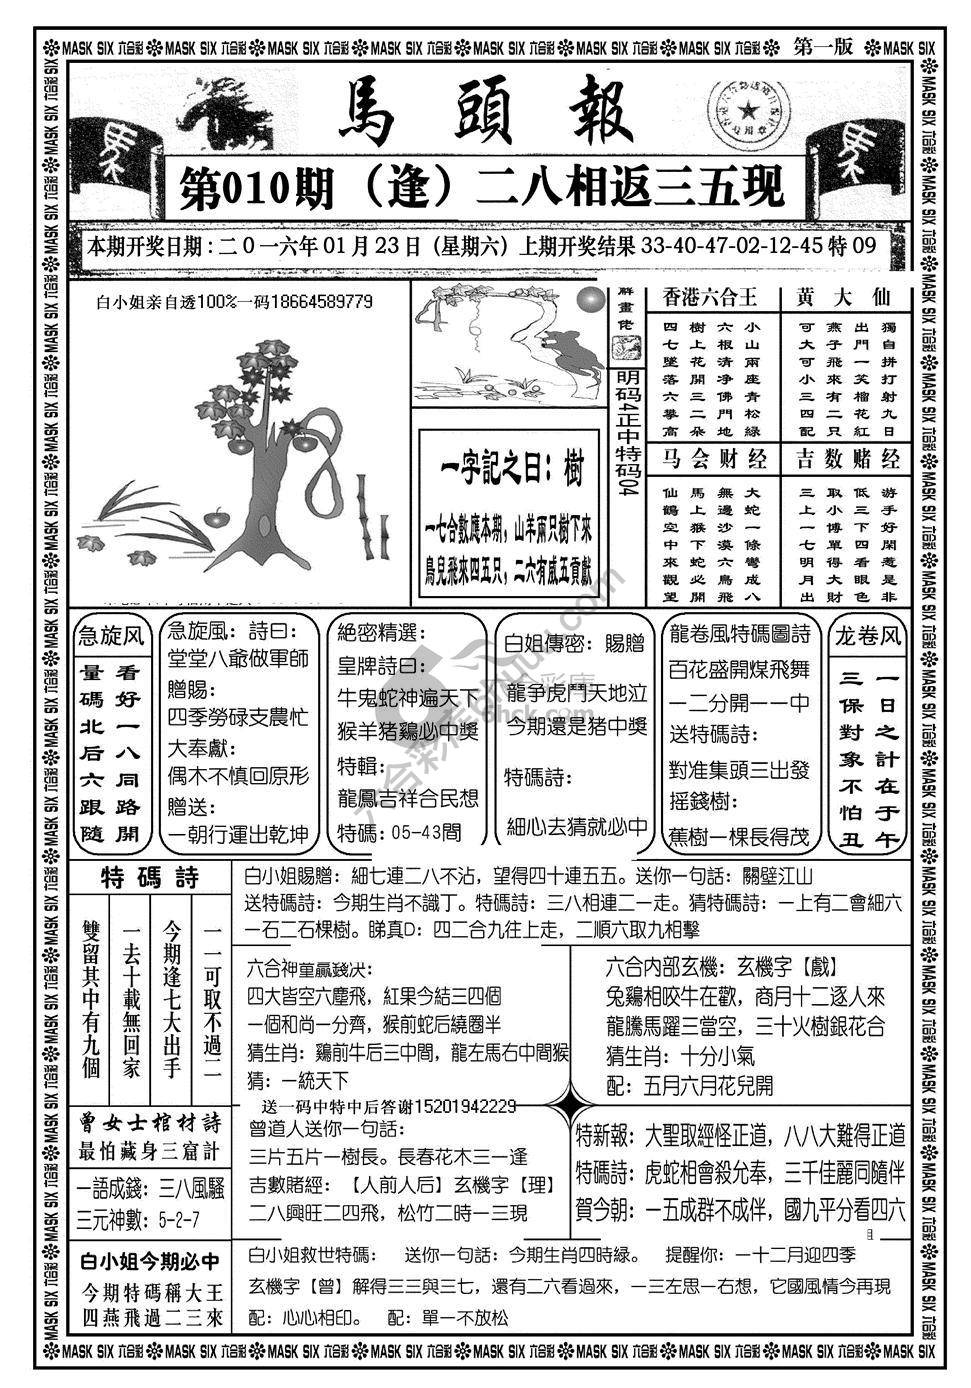 MASK SIX 六合彩 MASK SIX 六合彩 MASK SIX 六合彩 MASK SIX 六合彩 MASK SIX 六合彩 MASK SIX 六合彩 MASK SIX 六合彩 第一版 MASK SIX
馬頭報
第010期（逢）二八相返三五现
本期开奖日期：二0一六年01月23日（星期六）上期开奖结果33-40-47-02-12-45特09
白小姐亲自透100%一码18664589779
解畫佬
明码4正中特码04
一字記之曰：樹
一七合數應本期，山羊兩只樹下來
鳥兒飛來四五只，二六有威五貢獻
香港六合王
小山兩座青松綠
六根清净佛門地
樹上花開三二朵
四七墜落六攀高
黃大仙
獨自拼打射九日
出門一笑榴花紅
燕子飛來有二只
可大可小三四配
马会财经
大蛇一條彎成八
無邊沙漠六鳥飛
馬上猴下蛇必開
仙鶴空中來觀望
吉数赌经
游手好閑惹是非
低三下四看眼色
取小博單得大財
三上一七明月出
急旋风
看好一八同路開
量碼北后六跟隨
急旋風：詩曰：
堂堂八爺做軍師
贈賜：
四季勞碌支農忙
大奉獻：
偶木不慎回原形
贈送：
一朝行運出乾坤
絕密精選：
皇牌詩曰：
牛鬼蛇神遍天下
猴羊猪鷄必中獎
特輯：
龍鳳吉祥合民想
特碼：05-43間
白姐傳密：賜贈
龍争虎鬥天地泣
今期還是猪中獎
特碼詩：
細心去猜就必中
龍卷風特碼圖詩
百花盛開煤飛舞
一二分開一一中
送特碼詩：
對准集頭三出發
摇錢樹：
蕉樹一棵長得茂
龙卷风
一日之計在于午
三保對象不怕丑
特碼詩
一一可取不過二
今期逢七大出手
一去十載無回家
雙留其中有九個
白小姐賜贈：細七連二八不沾，望得四十連五五。送你一句話：關壁江山
送特碼詩：今期生肖不識丁。特碼詩：三八相連二一走。猜特碼詩：一上有二會細六
一石二石棵樹。睇真D：四二合九往上走，二順六取九相擊
六合神童贏錢决：
四大皆空六塵飛，紅果今結三四個
一個和尚一分齊，猴前蛇后繞圈半
猜生肖：鷄前牛后三中間，龍左馬右中間猴
猜：一統天下
六合内部玄機：玄機字【戲】
兔鷄相咬牛在歡，商月十二逐人來
龍騰馬躍三當空，三十火樹銀花合
猜生肖：十分小氣
配：五月六月花兒開
送一码中特中后答谢15201942229
曾女士棺材詩
最怕藏身三窟計
一語成錢：三八風騷
三元神數：5-2-7
曾道人送你一句話：
三片五片一樹長。長春花木三一逢
吉數賭經：【人前人后】玄機字【理】
二八興旺二四飛，松竹二時一三現
特新報：大聖取經怪正道，八八大難得正道
特碼詩：虎蛇相會殺允奉，三千佳麗同隨伴
賀今朝：一五成群不成伴，國九平分看四六
白小姐今期必中
今期特碼稱大王
四燕飛過二三來
白小姐救世特碼：　送你一句話：今期生肖四時緑。　提醒你：一十二月迎四季
玄機字【曾】解得三三與三七，還有二六看過來，一三左思一右想，它國風情今再現
配：心心相印。　配：單一不放松
MASK SIX 六合彩 MASK SIX 六合彩 MASK SIX 六合彩 MASK SIX 六合彩 MASK SIX 六合彩 MASK SIX 六合彩 MASK SIX 六合彩 MASK SIX 六合彩 MASK SIX